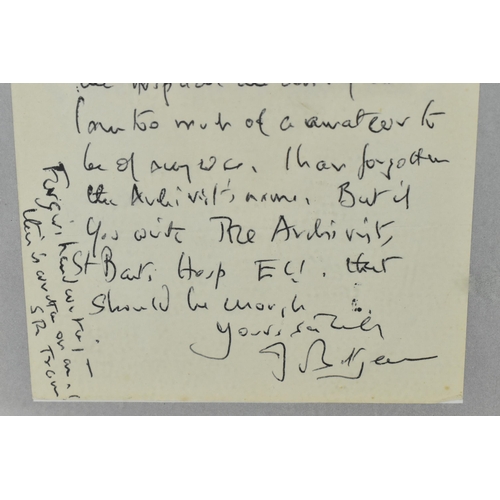 the Hospital
I am too much of a amateur to
be of any use. I have forgotten
the Archivist's name. But if
you write The Archivist,
St Barts Hosp EC1. that
should be enough
Yours sincerely
J Betjeman
Forgive handwriting
this is written on an
SR Train